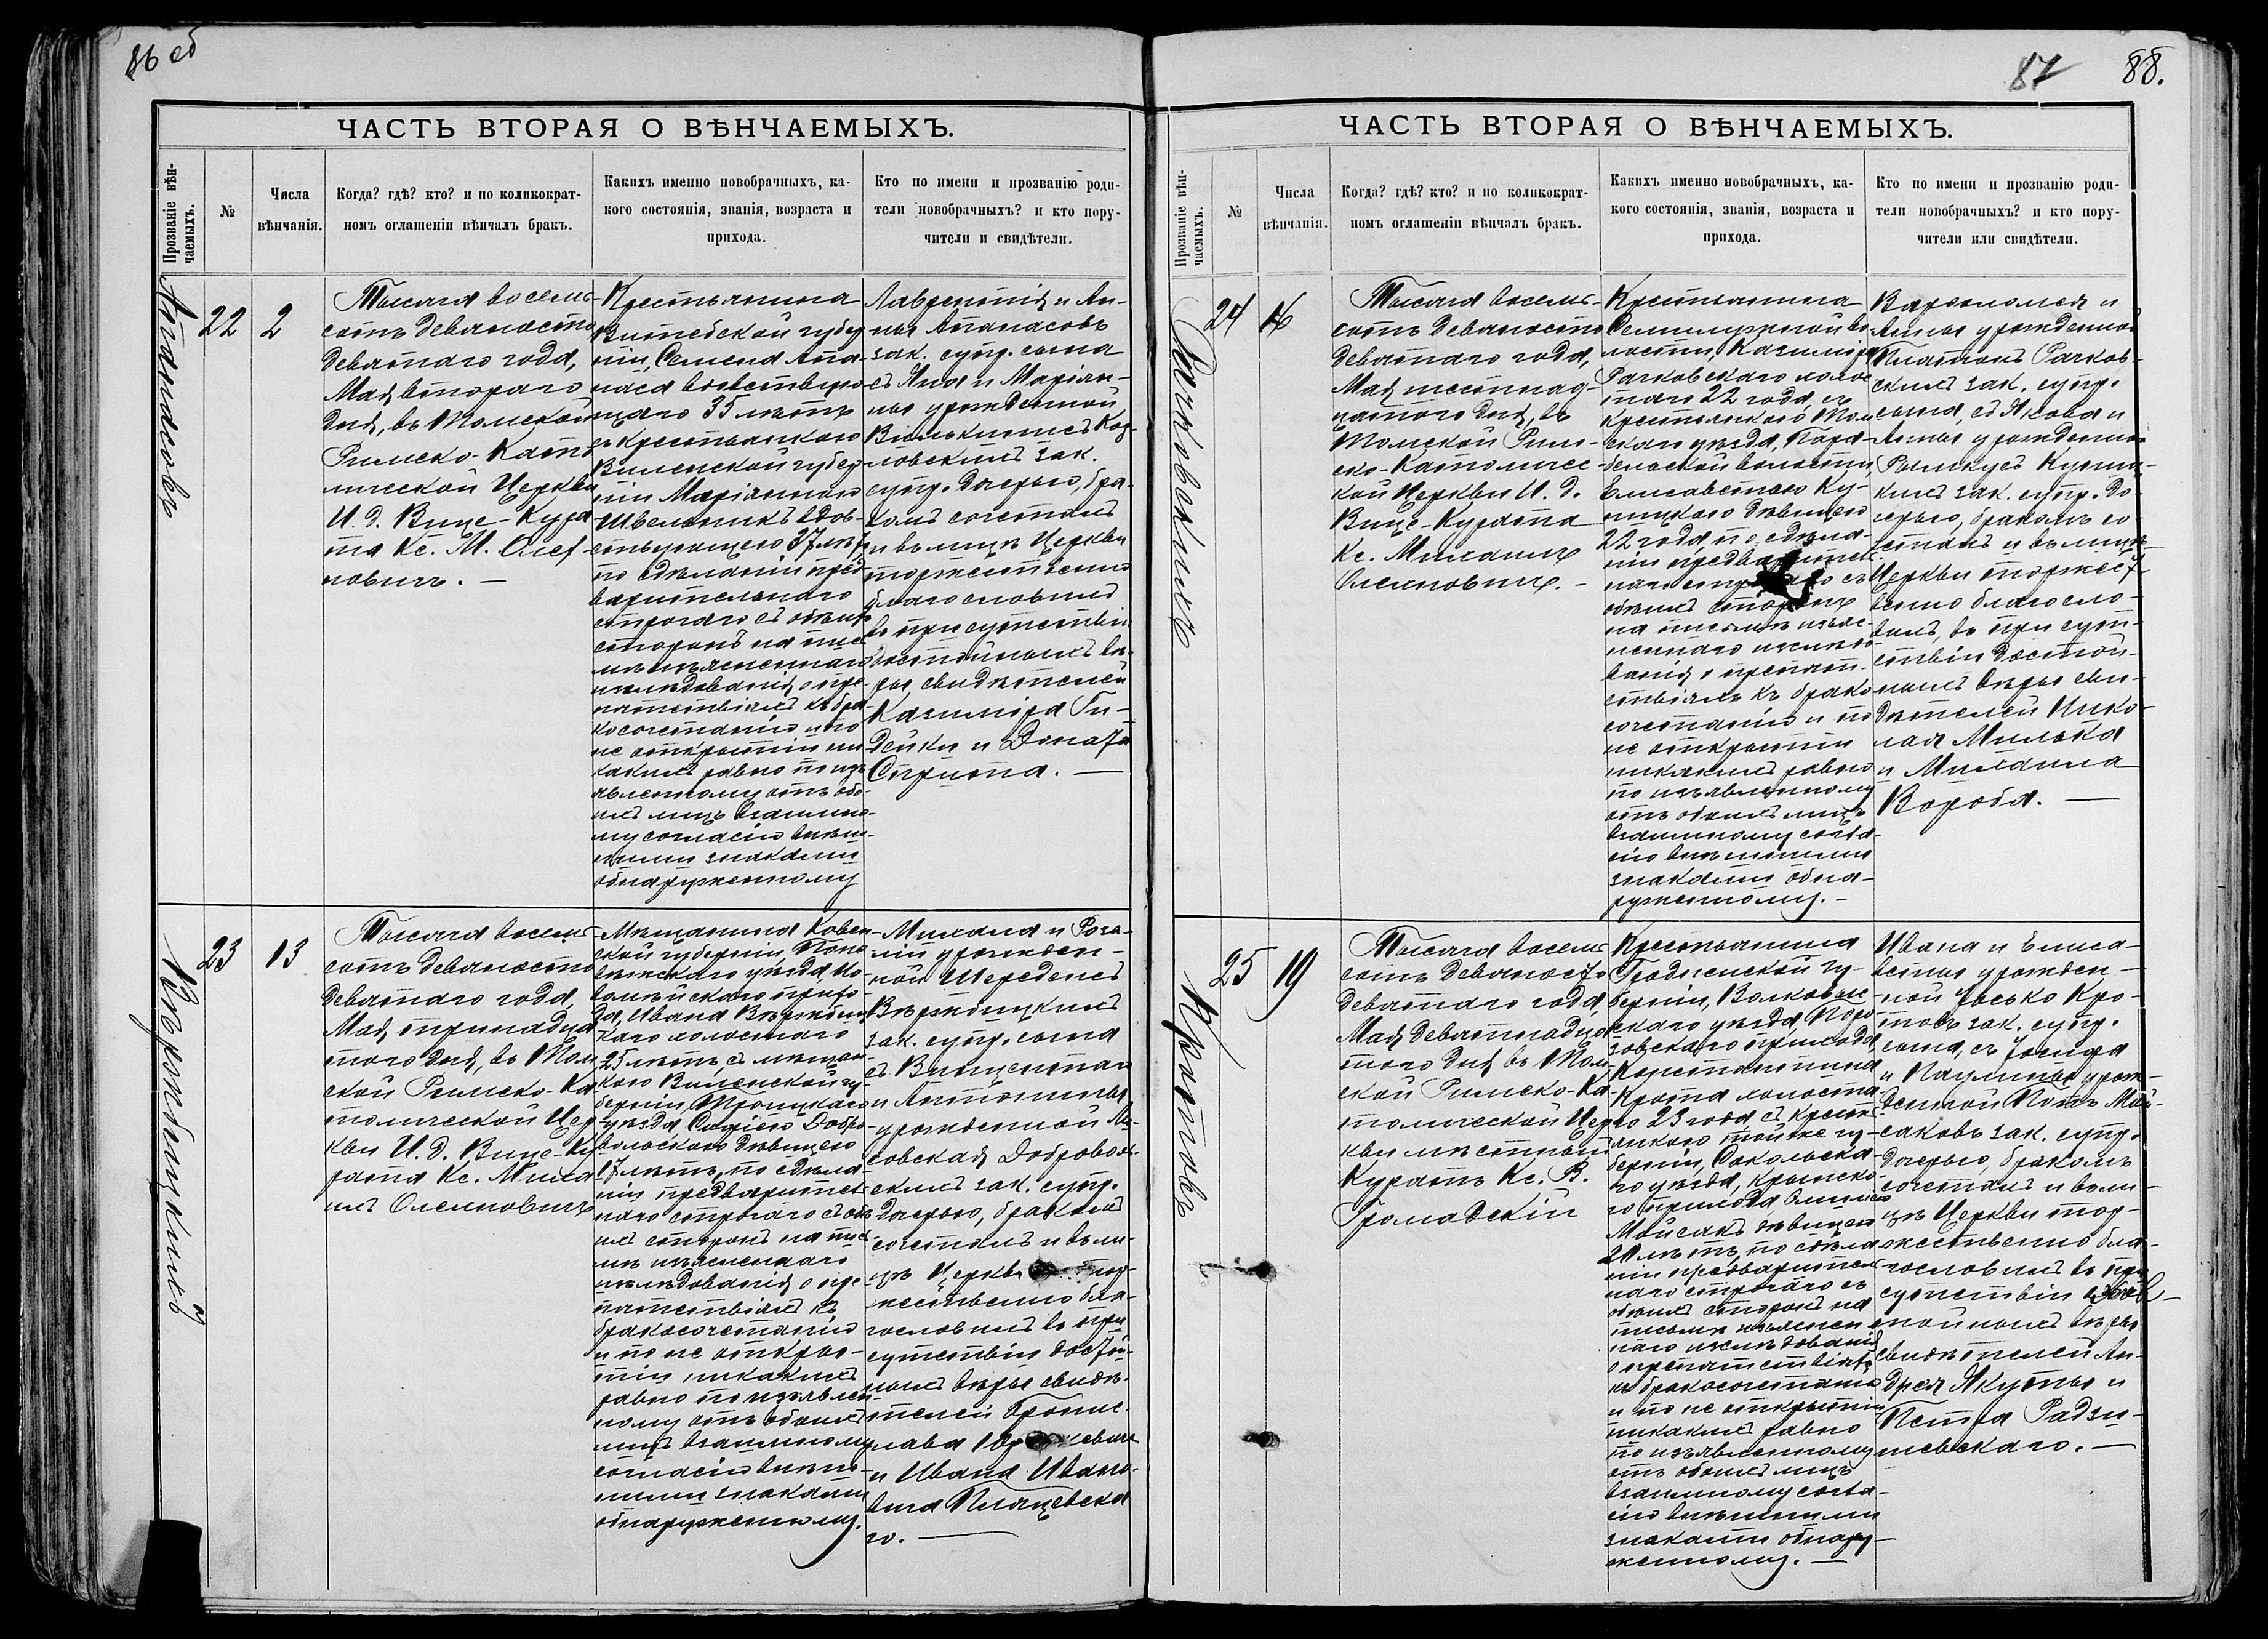 86 об
ЧАСТЬ ВТОРАЯ О ВѢНЧАЕМЫХЪ.
Прозваніе вѣн-
чаемыхъ.
№
Числа
вѣнчанія.
Когда? гдѣ? кто? и по коликократ-
номъ оглашеніи вѣнчалъ бракъ.
Какихъ именно новобрачныхъ, ка-
кого состоянія, званія, возраста и
прихода.
Кто по имени и прозванію роди-
тели новобрачныхъ? и кто пору-
чители и свидѣтели.
Апанасовъ
22
2
Тысяча восемь-
сотъ девяносто
девятаго года,
Мая втораго
дня, въ Томской
Римско-Като
лической Церкви
И. д. Вице-Кура
та Кс. М. Олех
новичъ. —
Крестьянина
Витебской губер
ніи, Семена Апа-
наса вдовствую
щаго 35 лѣтъ
съ крестьянкою
Виленской губер
ніи Маріанною
вдов-
ствующею 37 лѣтъ
по сдѣланіи пред
варительнаго
строгаго съ обѣихъ
сторонъ на пись
мѣ изъясненнаго
изслѣдованія о пре
пятствіяхъ къ бра
косочетанію и по
не открытіи ни
какихъ равно по изъ
явленному отъ обо-
ихъ лицъ взаимно-
му согласію внѣш-
ними знаками
обнаруженному
Лаврентія и Ан-
ны Апанасовъ
зак. супр. сына
съ Яна и Маріан-
ны урожденной
Коз-
ловскихъ зак.
супр. дочерью, бра-
комъ сочеталъ
и въ лицѣ Церкви
торжественно
благословилъ
въ присутствіи
достойныхъ вѣ-
ры свидѣтелей
Казимира Ги-
дейки и Доната
Сприпта. —
Вѣржбицкихъ
23
13
Тысяча восемь
сотъ девяносто
девятаго года,
Мая тринадца
таго дня, въ Том
ской Римско-Ка
толической Цер
кви И. д. Вице-Ку
рата Кс. Миха
илъ Олехновичъ
Мѣщанина Ковен
ской губерніи, Поне
вѣжскаго уѣзда,
прихо
да, Ивана Вѣржбиц
каго холостаго
25 лѣтъ, съ мѣщан-
кою Виленской гу
берніи, Трокскаго
уѣзда Софіею Добро
вольскою дѣвицею
17 лѣтъ, по сдѣла-
ніи предварител
наго строгаго съ обѣ
ихъ сторонъ на пис
мѣ изъясненнаго
изслѣдованія о пре
пятствіяхъ къ
бракосочетанію
и по не откры-
тіи никакихъ
равно по изъявлен
ному отъ обоихъ
лицъ взаимному
согласію внѣш-
ними знаками
обнаруженному.
Михала и Роза-
ліи урожден-
ной Шереденсъ
Вѣржбицкихъ
зак. супр. сына
съ Винцентаго
и Антонины
урожденной Ли-
совская Доброволь
скихъ зак. супр.
дочерью, бракомъ
сочеталъ и въ ли-
цѣ Церкви тор-
жественно бла-
гословилъ въ при
сутствіи достой-
ныхъ вѣры свидѣ-
телей Бронис
лава
и Ивана Ивано-
вича Плащевска
го. —
87
88.
ЧАСТЬ ВТОРАЯ О ВѢНЧАЕМЫХЪ.
Прозваніе вѣн-
чаемыхъ.
№
Числа
вѣнчанія.
Когда? гдѣ? кто? и по коликократ-
номъ оглашеніи вѣнчалъ бракъ.
Какихъ именно новобрачныхъ, ка-
кого состоянія, званія, возраста и
прихода.
Кто по имени и прозванію роди-
тели новобрачныхъ? и кто пору-
чители или свидѣтели.
Рачковскихъ
24
16
Тысяча восемь-
сотъ девяносто
девятаго года,
Мая шестнад-
цатаго дня, въ
Томской Рим-
ско-Католичес
кой Церкви И. д.
Вице-Курата
Кс. Михаилъ
Олехновичъ. —
Крестьянина
Семилужной во
лости, Казиміра
Рачковскаго холос
таго 22 года, съ
крестьянкою Том
скаго уѣзда, Пара-
бельской волости
Елисаветою Ку-
ницкою дѣвицею
22 года по сдѣла-
ніи предварител
наго строгаго съ
обѣихъ сторонъ
на письмѣ изъяс-
неннаго изслѣдо
ванія о препят-
ствіяхъ къ брако
сочетанію и по
не открытіи
никакихъ равно
по изъявленному
отъ обоихъ лицъ
взаимному согла-
сію внѣшними
знаками обна-
руженному. —
Варѳоломея и
Анны урожденной
Рачков-
скихъ зак. супр.
сына, съ Якова и
Анны урожденной
зак. супр. до-
черью, бракомъ со-
четалъ и въ лицѣ
Церкви торжест
венно благосло-
вилъ, въ присут-
ствіи достой-
ныхъ вѣры сви-
дѣтелей Нико-
лая Милька
и Михаила
Вороба. —
Кротовъ
25
19
Тысяча восемь
сотъ девяносто
девятаго года,
Мая девятнадца
таго дня въ Том-
ской Римско-Ка
толической Цер
кви мѣстный
Куратъ Кс. В.
Громадскій
Крестьянина
Гродненской гу-
берніи, Волковыс
скаго уѣзда, Поро-
зовскаго прихода,
Константина
Крота холоста-
го 23 года, съ крест
янкою той же гу-
берніи, Сокольска-
го уѣзда,
го прихода
Мойсакъ дѣвицею
20 лѣтъ, по сдѣла
ніи предварител
наго строгаго съ
обѣихъ сторонъ на
письмѣ изъяснен
наго изслѣдованія
о препятствіяхъ
къ бракосочетанію
и по не открытіи
никакихъ равно
по изъявленному
отъ обоихъ лицъ
взаимному согла-
сію внѣшними
знаками обнару-
женному. —
Ивана и Елиса-
веты урожден-
ной Кро-
товъ зак. супр.
сына, съ Іосифа
и Паулины урож-
денной Мой-
саковъ зак. супр.
дочерью, бракомъ
сочеталъ и въ ли-
цѣ Церкви тор-
жественно бла-
гословилъ въ при
сутствіи дос-
тойныхъ вѣры
свидѣтелей Ан-
дрея Якубты и
Петра Радзи-
шевскаго. —